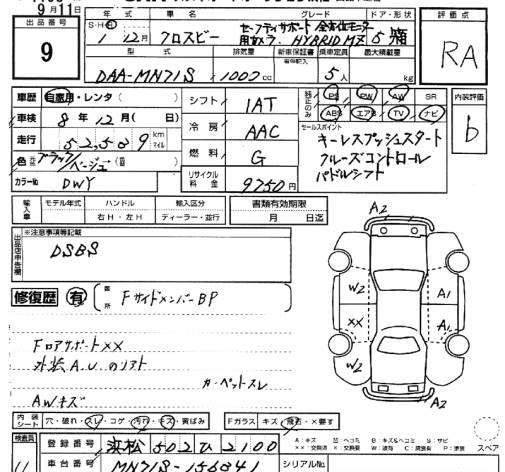 9月11日
出品番号
9
年式 車名 グレード ドア・形状
S・H・R 1年12月 クロスビー セーフティサポート 全方位モニター用カメラ HYBRID MZ 5 箱
型式 排気量 新車保証書 乗車定員 最大積載量
DAA-MN71S 1000cc 5人 kg
評価点
RA
車歴 自家用・レンタ( )
車検 8年12月( 日)
走行 52,509 km マイル
色 ブラック/ベージュ
カラーNo DWY
シフト IAT
冷房 AAC
燃料 G
リサイクル料金 9750円
純正のみ PS PW AW SR
ABS エアB TV ナビ
セールスポイント
キーレスプッシュスタート
クルーズコントロール
パドルシフト
内装評価
b
輸入車 モデル年式 ハンドル 輸入区分
右H・左H ディーラー・並行
書類有効期限
月 日迄
出品店申告欄
※注意事項等記載
DSBS
修復歴 有 箇所 FサイドメンバーBP
Fロアサポート××
外装A.U.のリフト
カーペットスレ
AWキズ
A2
W2 A1
XX A1
W2 W2
A2
内装シート 穴・破れ・スレ・コゲ・汚れ・キズ・黄ばみ
Fガラス キズ・飛石・×要す
検査員
登録番号 浜松 502 ひ 2100
車台番号 MN71S-156341
シリアルNo.
スペア